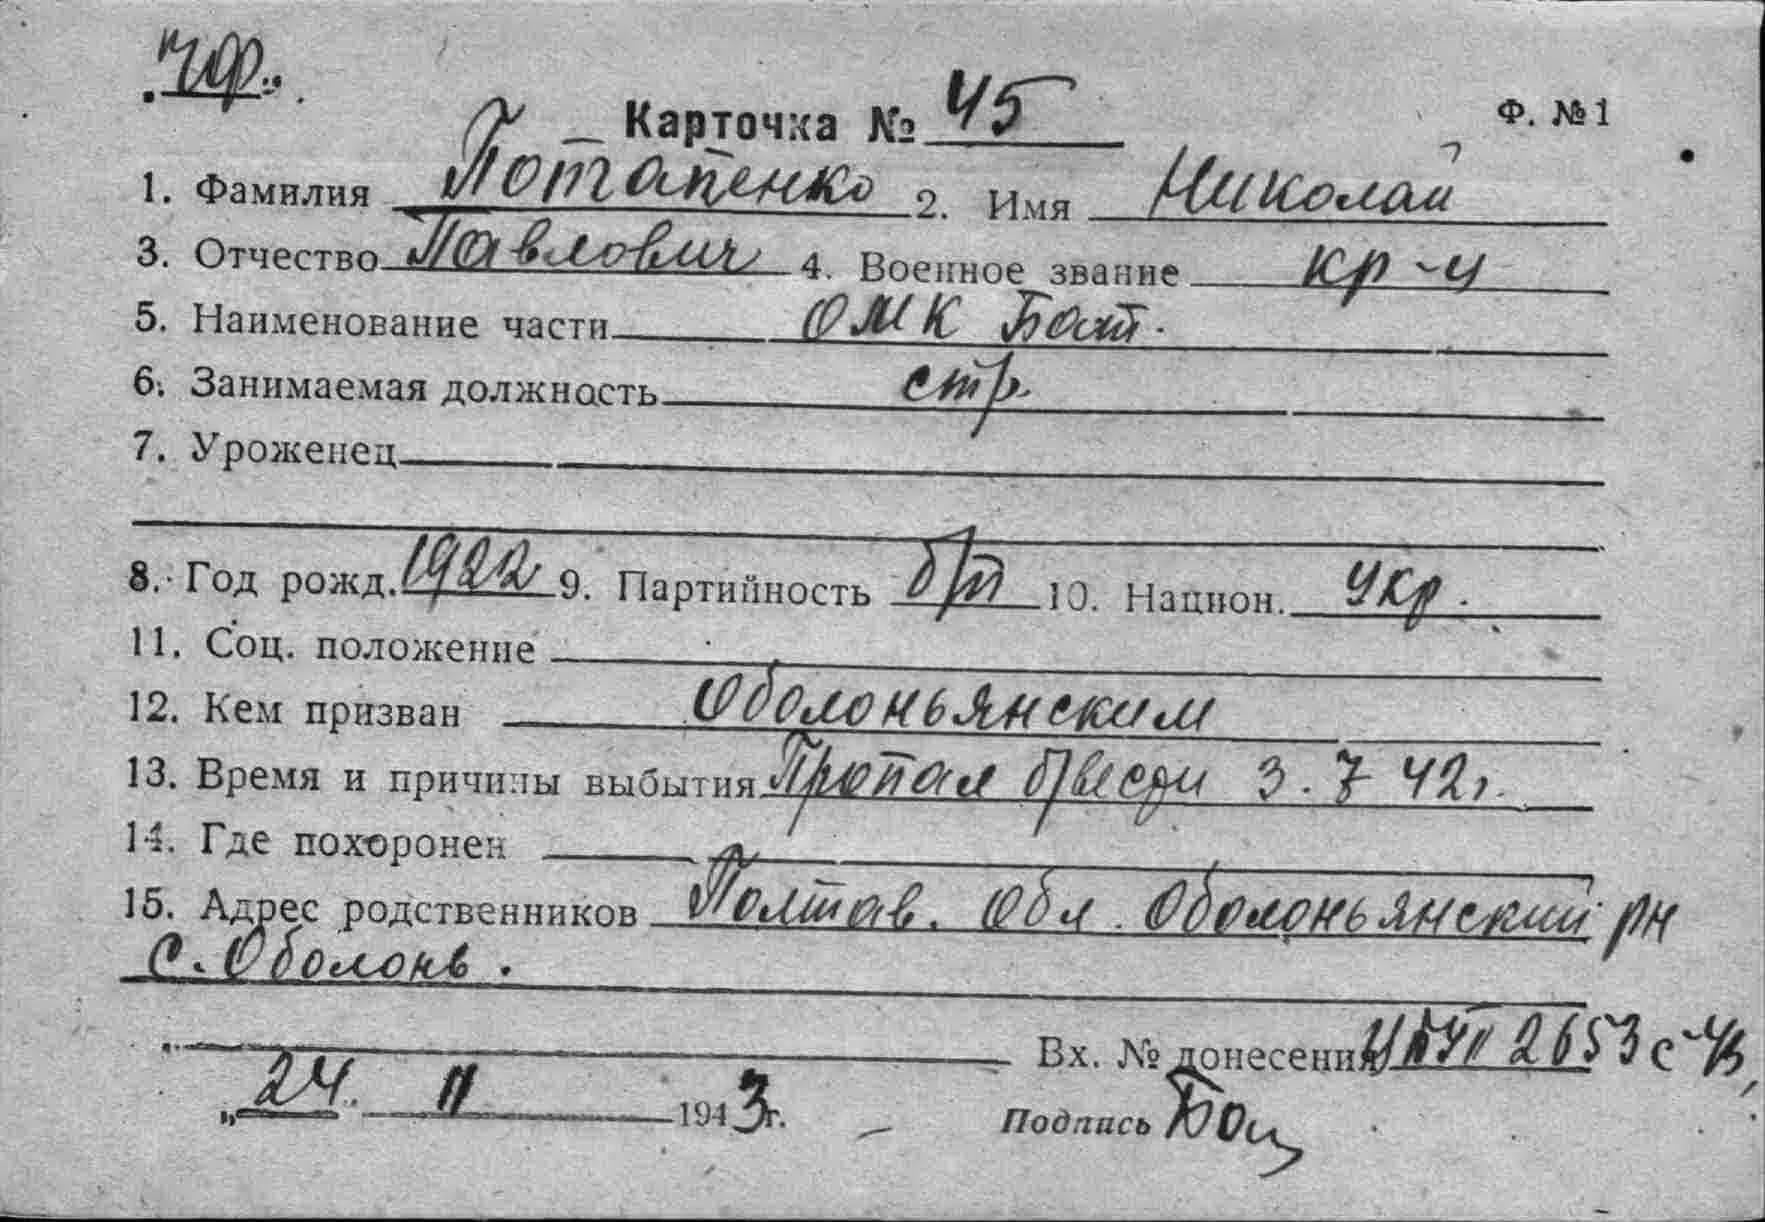 ЧФ.
Карточка № 45 Ф. № 1
1. Фамилия Потапенко 2. Имя Николай
3. Отчество Павлович 4. Военное звание кр-ц
5. Наименование части ОМК Бат.
6. Занимаемая должность стр.
7. Уроженец
8. Год рожд. 1922 9. Партийность б/п 10. Национ. Укр.
11. Соц. положение
12. Кем призван Оболоньянским
13. Время и причины выбытия Пропал б/вести 3.7 42г.
14. Где похоронен
15. Адрес родственников Полтав. Обл. Оболоньянский рн
с. Оболонь.
Вх. № донесения 2653 с
„24. II 1943г. Подпись